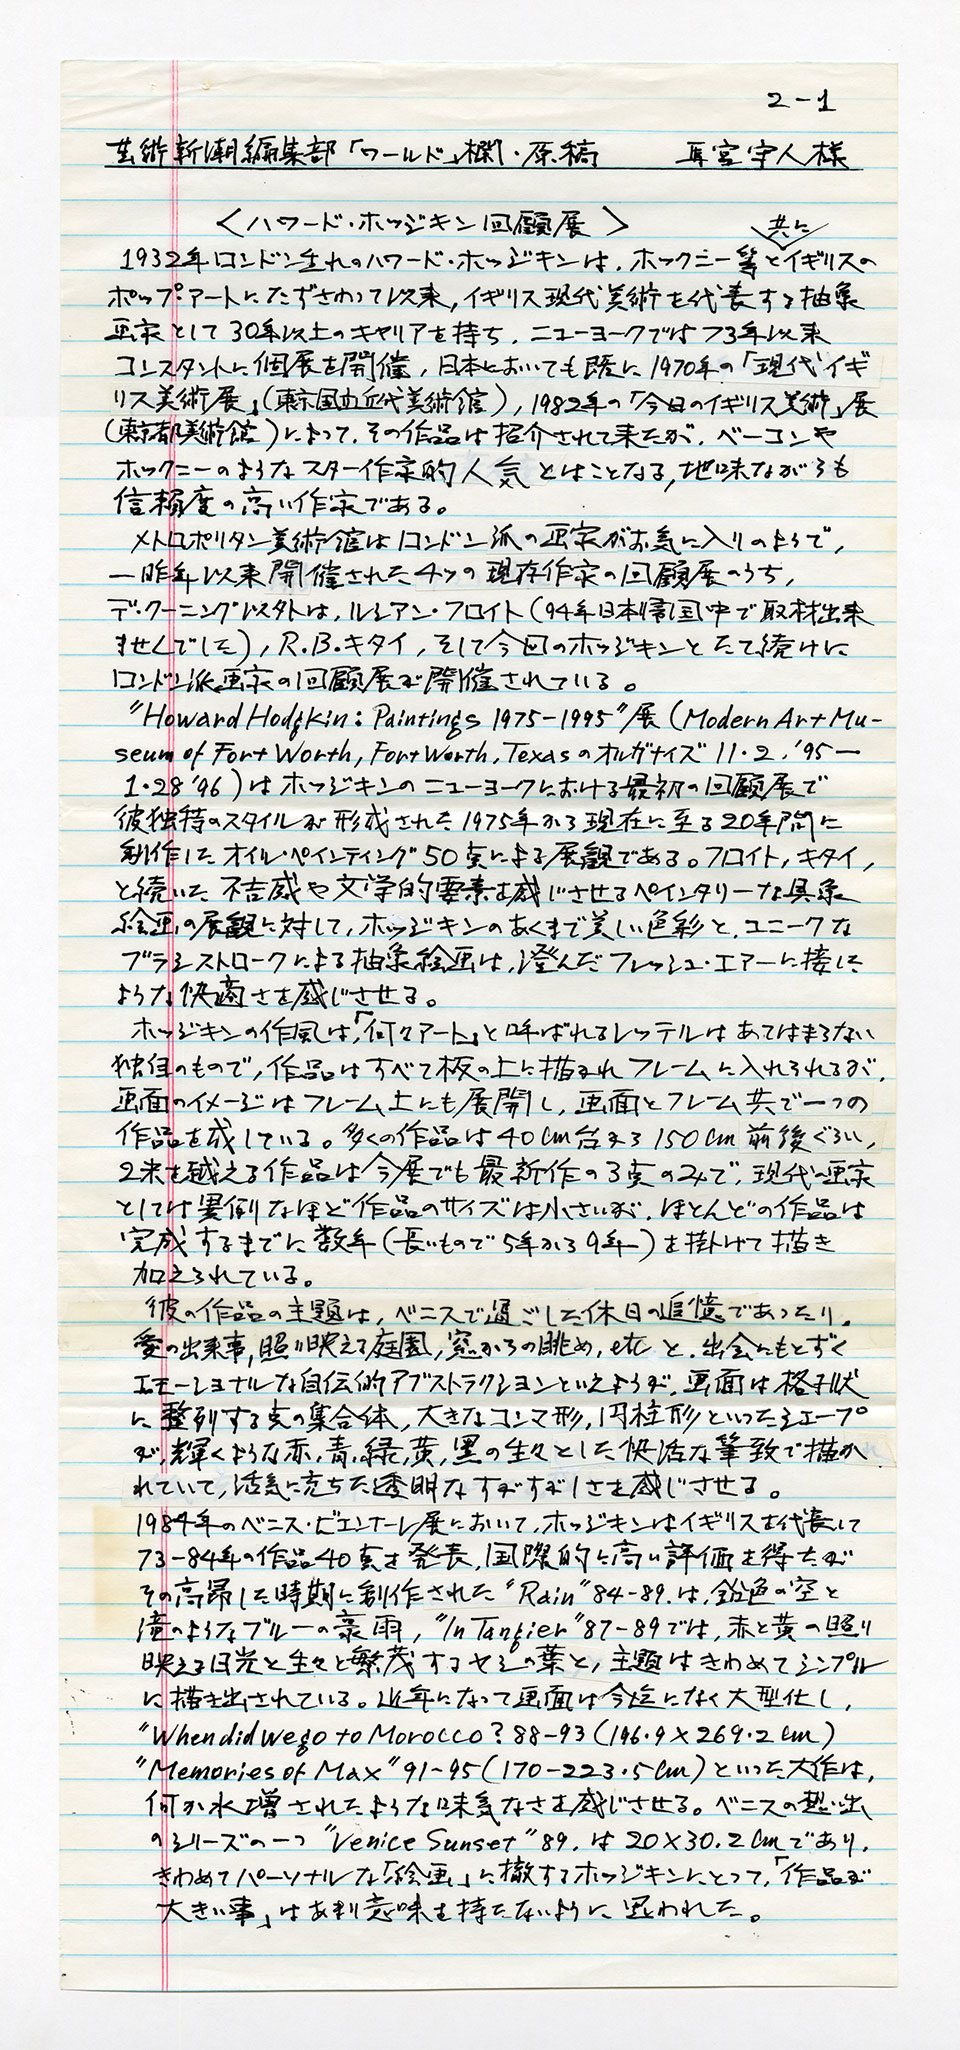 2-1
芸術新潮編集部「ワールド」欄・原稿 耳宮守人様
〈ハワード・ホッジキン回顧展〉
共に
1932年ロンドン生れのハワード・ホッジキンは、ホックニー等とイギリスの
ポップ・アートにたずさわって以来、イギリス現代美術を代表する抽象
画家として30年以上のキャリアを持ち、ニューヨークでは73年以来
コンスタントに個展を開催、日本においても既に1970年の「現代イギ
リス美術展」(東京国立近代美術館)、1982年の「今日のイギリス美術」展
(東京都美術館)によって、その作品は紹介されて来たが、ベーコンや
ホックニーのようなスター作家的人気とはことなる、地味ながらも
信頼度の高い作家である。
メトロポリタン美術館はロンドン派の画家がお気に入りのようで、
一昨年以来開催された4つの現存作家の回顧展のうち、
デ・クーニング以外は、ルシアン・フロイト(94年日本帰国中で取材出来
ませんでした)、R.B.キタイ、そして今回のホッジキンとたて続けに
ロンドン派画家の回顧展が開催されている。
"Howard Hodgkin: Paintings 1975-1995"展(Modern Art Mu-
seum of Fort Worth, Fort Worth, Texasのオルガナイズ 11・2,'95—
1・28'96)はホッジキンのニューヨークにおける最初の回顧展で
彼独特のスタイルが形成された1975年から現在に至る20年間に
制作したオイル・ペインティング50点による展観である。フロイト、キタイ、
と続いた不吉感や文学的要素を感じさせるペインタリーな具象
絵画の展観に対して、ホッジキンのあくまで美しい色彩と、ユニークな
ブラシストロークによる抽象絵画は、澄んだフレッシュ・エアーに接した
ような快適さを感じさせる。
ホッジキンの作風は、「何々アート」と呼ばれるレッテルはあてはまらない
独自のもので、作品はすべて板の上に描かれフレームに入れられるが、
画面のイメージはフレーム上にも展開し、画面とフレーム共で一つの
作品を成している。多くの作品は40cm台から150cm前後ぐらい、
2米を越える作品は今展でも最新作の3点のみで、現代の画家
としては異例なほど作品のサイズは小さいが、ほとんどの作品は
完成するまでに数年(長いもので5年から9年)を掛けて描き
加えられている。
彼の作品の主題は、ベニスで過ごした休日の追憶であったり、
愛の出来事、照り映える庭園、窓からの眺め、etc と、出会にもとずく
エモーショナルな自伝的アブストラクションといえようが、画面は格子状
に整列する点の集合体、大きなコンマ形、円柱形といったシェープ
が、輝くような赤、青、緑、黄、黒の生々とした快活な筆致で描か
れていて、活気に充ちた透明なすがすがしさを感じさせる。
1984年のベニス・ビエンナーレ展において、ホッジキンはイギリスを代表して
73-84年の作品40点を発表、国際的に高い評価を得たが
その高昂した時期に制作された"Rain"84-89.は、鉛色の空と
滝のようなブルーの豪雨、"In Tangier"87-89では、赤と黄の照り
映える日光と生々と繁茂するヤシの葉と、主題はきわめてシンプル
に描き出されている。近年になって画面は今迄になく大型化し、
"When did we go to Morocco? 88-93(196.9×269.2cm)
"Memories of Max"91-95(170-223.5cm)といった大作は、
何か水増されたような味気なさを感じさせる。ベニスの想い出
のシリーズの一つ"Venice Sunset"89.は20×30.2cmであり、
きわめてパーソナルな「絵画」に徹するホッジキンにとって、「作品が
大きい事」はあまり意味を持たないように思われた。